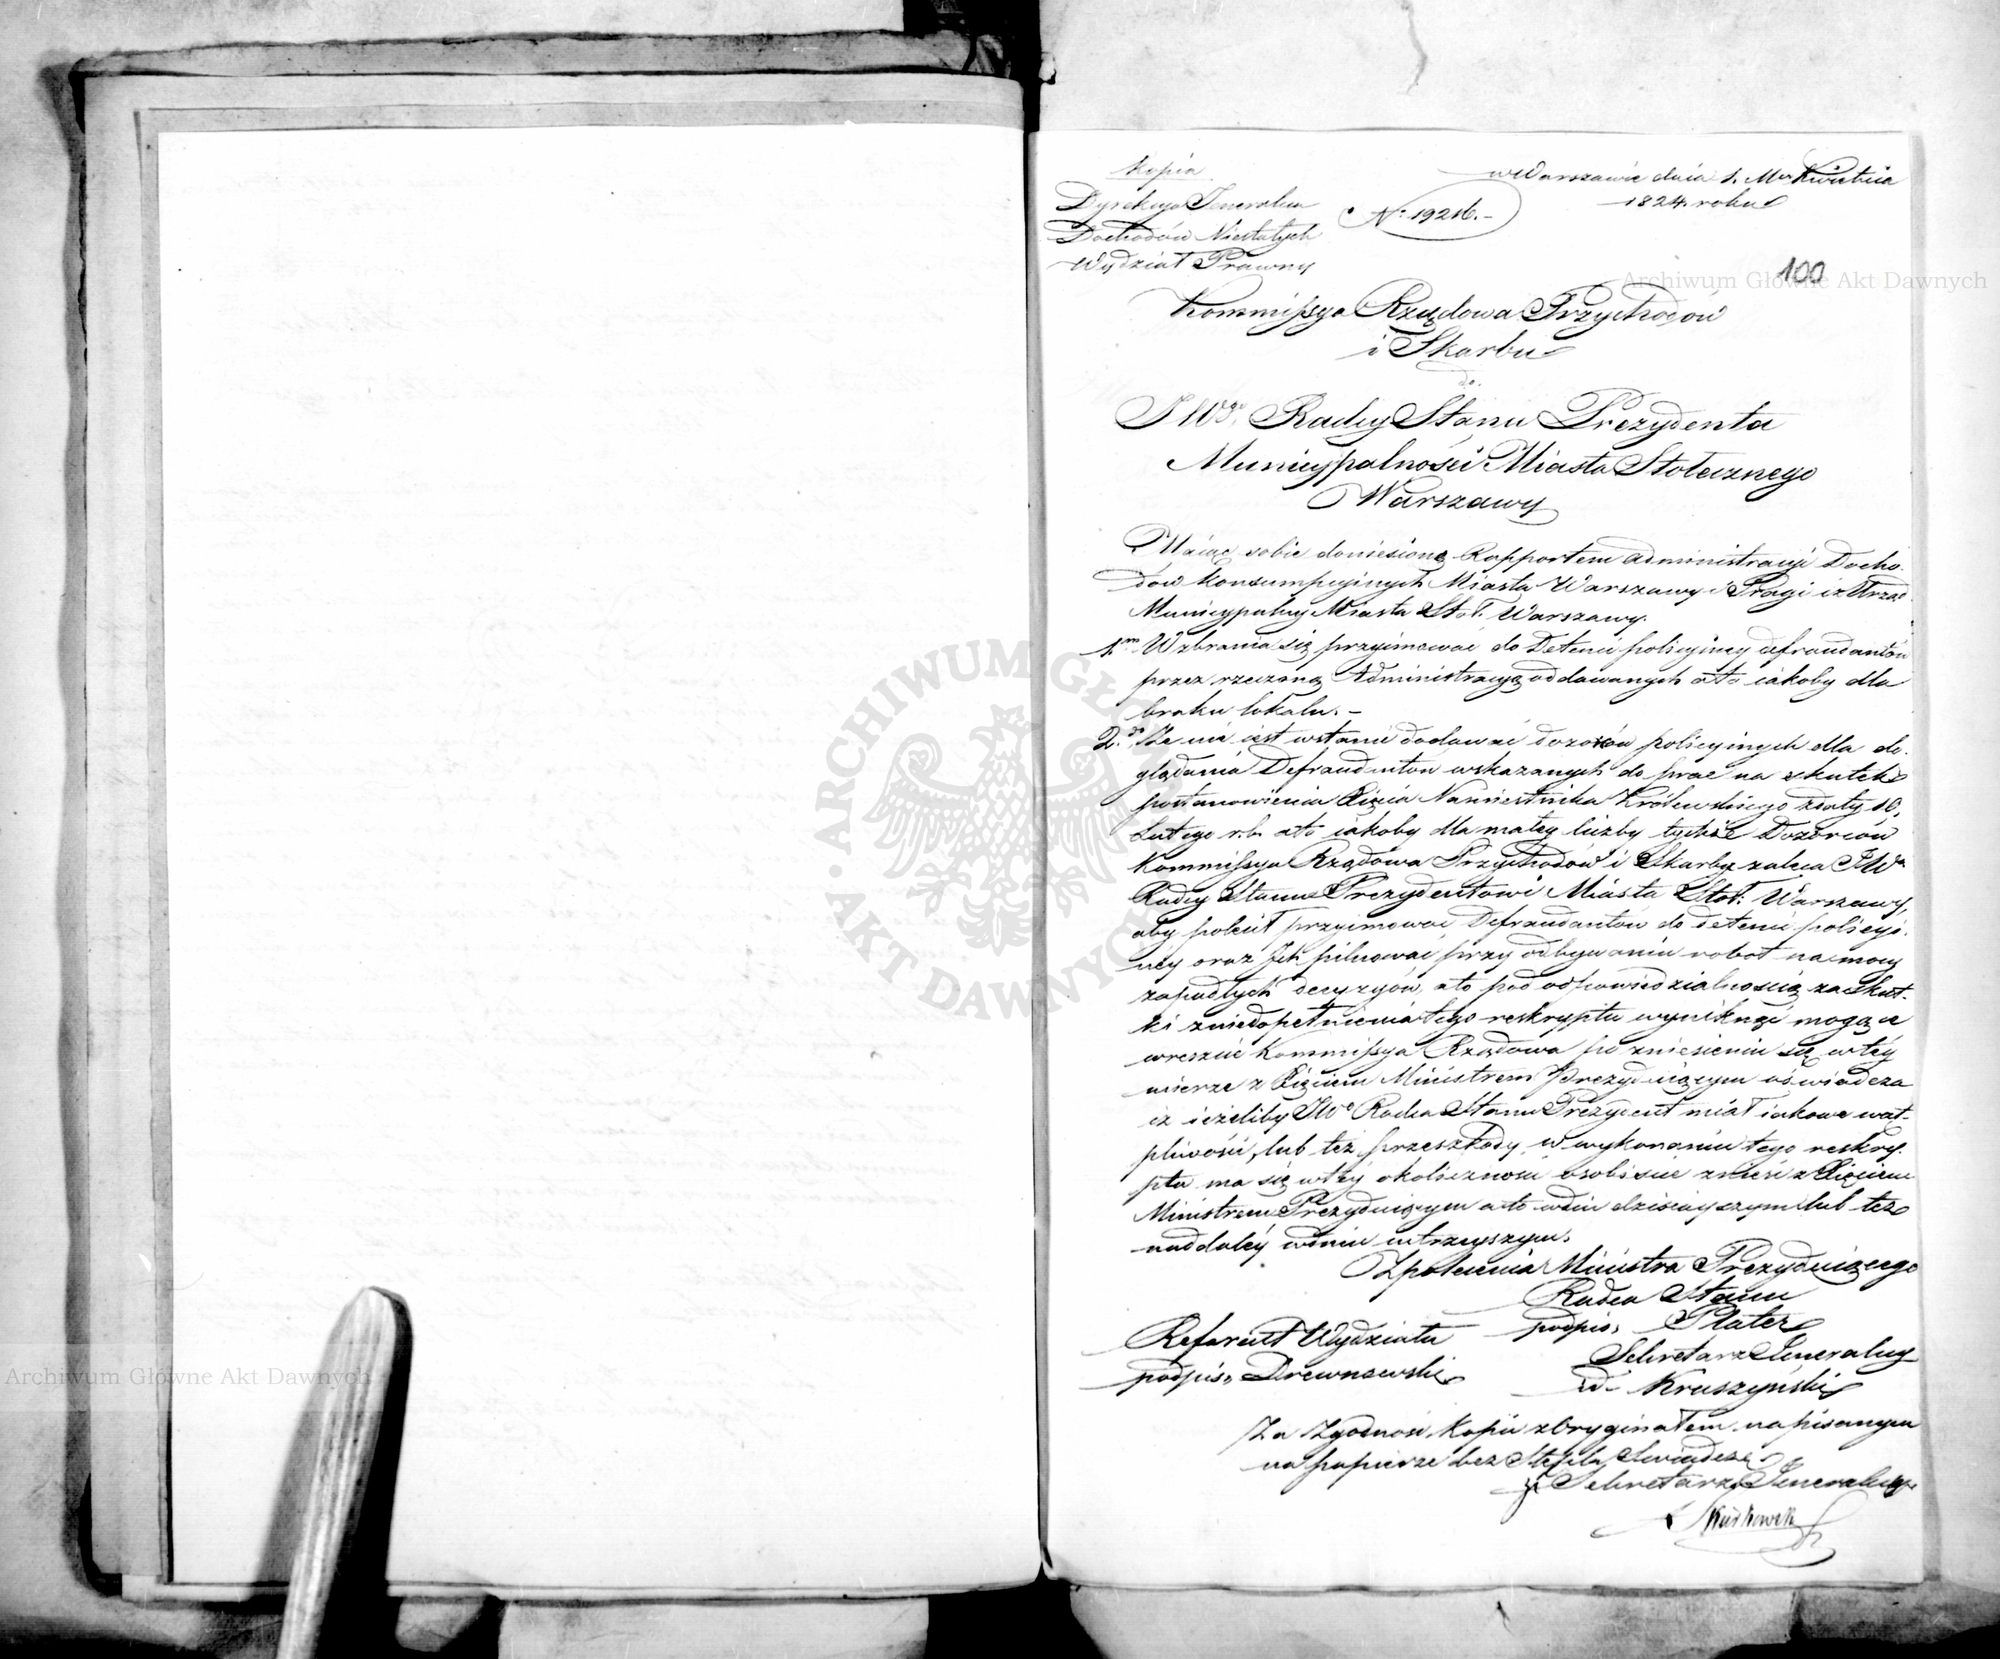 Kopia
w Warszawie dnia 1. Mca Kwietnia
1824. roku
Dyrekcya Jeneralna
Dochodów Niestałych
Wydział Prawny
N: 19216.-
100
Kommissya Rządowa Przychodów
i Skarbu
do
JWgo Radcy Stanu Prezydenta
Municypalności Miasta Stołecznego
Warszawy
Maiąc sobie doniesioną Rapportem Administracyi Docho-
dów Konsumpcyinych Miasta Warszawy i Pragi iż Urząd
Municypalny Miasta Stoł. Warszawy.
1mo Wzbrania się przyimować do Detencii policyiney defraudantów
przez rzeczoną Administracyą oddawanych a to iakoby dla
braku lokalu. -
2do Że nie iest wstanie dodawać dozorców policyinych dla do-
glądania Defraudantów wskazanych do prac na skutek
postanowienia Xięcia Namiestnika Królewskiego z daty 10.
Lutego r.b. a to iakoby dla małey liczby tychże Dozorców
Kommissya Rządowa Przychodów i Skarbu zaleca JWu
Radcy Stanu Prezydentowi Miasta Stoł: Warszawy,
aby polecił przyimować Defraudantów do detencii policyi-
ney oraz Ich pilnować przy odbywaniu robót na mocy
zapadłych decyzyów, a to pod odpowiedzialnością za skut-
ki z niedopełnienia tego reskryptu wyniknąć mogące
wreszcie Kommissya Rządowa po zniesieniu się w téy
mierze z Xięciem Ministrem Prezyduiącym oświadcza
iż ieżeliby JWy Radca Stanu Prezydent miał iakowe wąt-
pliwości, lub też przeszkody w wykonaniu tego reskry-
ptu ma się w téy okoliczności osobiście znieść z Xięciem
Ministrem Prezyduiącym a to w dniu dzisieyszym lub też
naddaléy w dniu iutrzeyszym.
Z polecenia Ministra Prezyduiącego
Radca Stanu
podpis. Plater
Referent Wydziału
podpis. Drewnowski
Sekretarz Jeneralny
Kruszyński
Za Zgodność Kopii z Oryginałem napisanym
na papierze bez Stępla Swiadczę
Sekretarz Jeneralny
Archiwum Główne Akt Dawnych
Archiwum Główne Akt Dawnych
ARCHIWUM GŁÓWNE AKT DAWNYCH